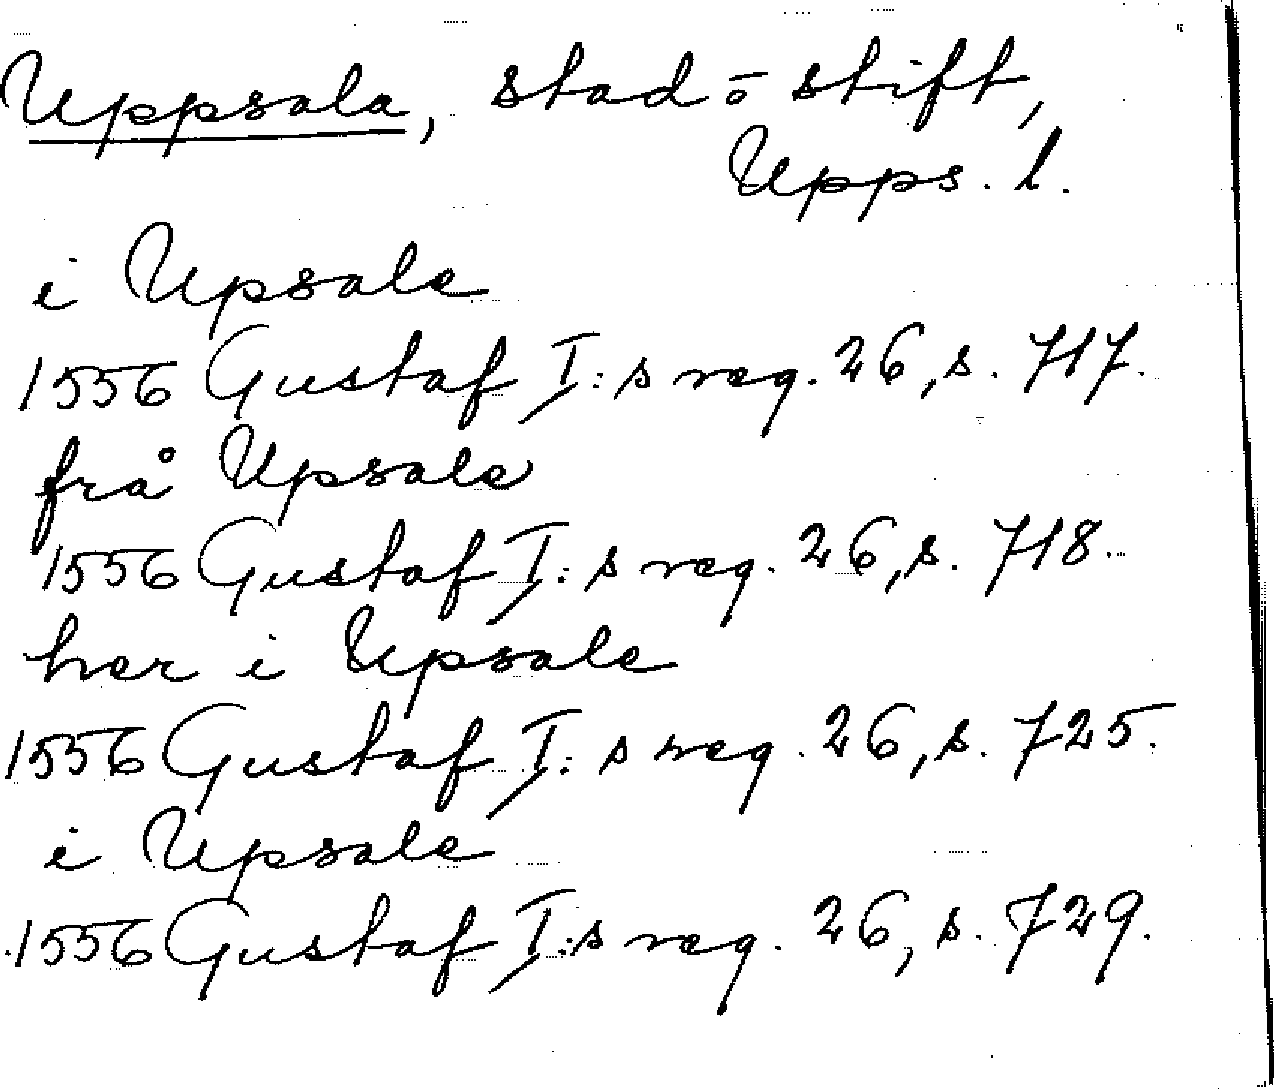 Uppsala, stad o stift,
Upps. l.
i Upsale
1556 Gustaf I:s reg. 26, s. 717.
frå Upsale
1556 Gustaf I:s reg. 26, s. 718.
her i Upsale
1556 Gustaf I:s reg. 26, s. 725.
i Upsale
1556 Gustaf I:s reg. 26, s. 729.